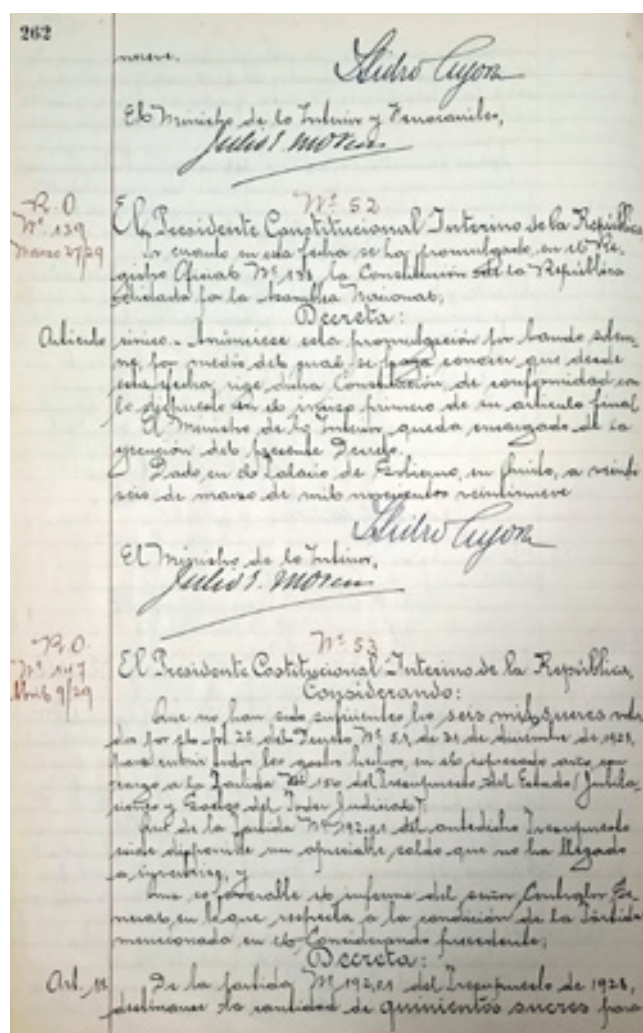 262
nueve.
Isidro Ayora
El Ministro de lo Interior y Ferrocarriles,
Julio E. Moreno
R. O.
Nº 139
Marzo 27/29
Nº 52
El Presidente Constitucional Interino de la República
Por cuanto en esta fecha se ha promulgado, en el Re-
gistro Oficial Nº 138, la Constitución de la República
dictada por la Asamblea Nacional,
Decreta:
Artículo único.- Anúnciese esta promulgación por bando solem-
ne, por medio del cual se haga conocer que desde
esta fecha, rige dicha Constitución, de conformidad con
lo dispuesto en el inciso primero de su artículo final
El Ministro de lo Interior, queda encargado de la
ejecución del presente Decreto.
Dado, en el Palacio de Gobierno, en Quito, a veinte
seis de marzo de mil novecientos veintinueve
Isidro Ayora
El Ministro de lo Interior,
Julio E. Moreno
R. O.
Nº 147
Abril 9/29
Nº 53
El Presidente Costitucional Interino de la República,
Considerando:
Que no han sido suficientes los seis mil sucres
dos por el Art. 25 del Decreto Nº de 31 de diciembre de 1928,
para cubrir todos los gastos hechos, en el expresado año con
cargo a la Partida Nº 150 del Presupuesto del Estado (Jubila-
ciones y del Poder Judicial);
Que de la Partida Nº 192,01 del antedicho Presupuesto
existe disponible un apreciable saldo que no ha llegado
a invertirse, y
Que es favorable el informe del señor Contralor Ge-
neral, en lo que respecta a la condición de la Partida
mencionada, en el Considerando precedente;
Decreta:
Art. 1º De la partida Nº 192,01 del Presupuesto de 1928,
la cantidad de quinientos sucres para